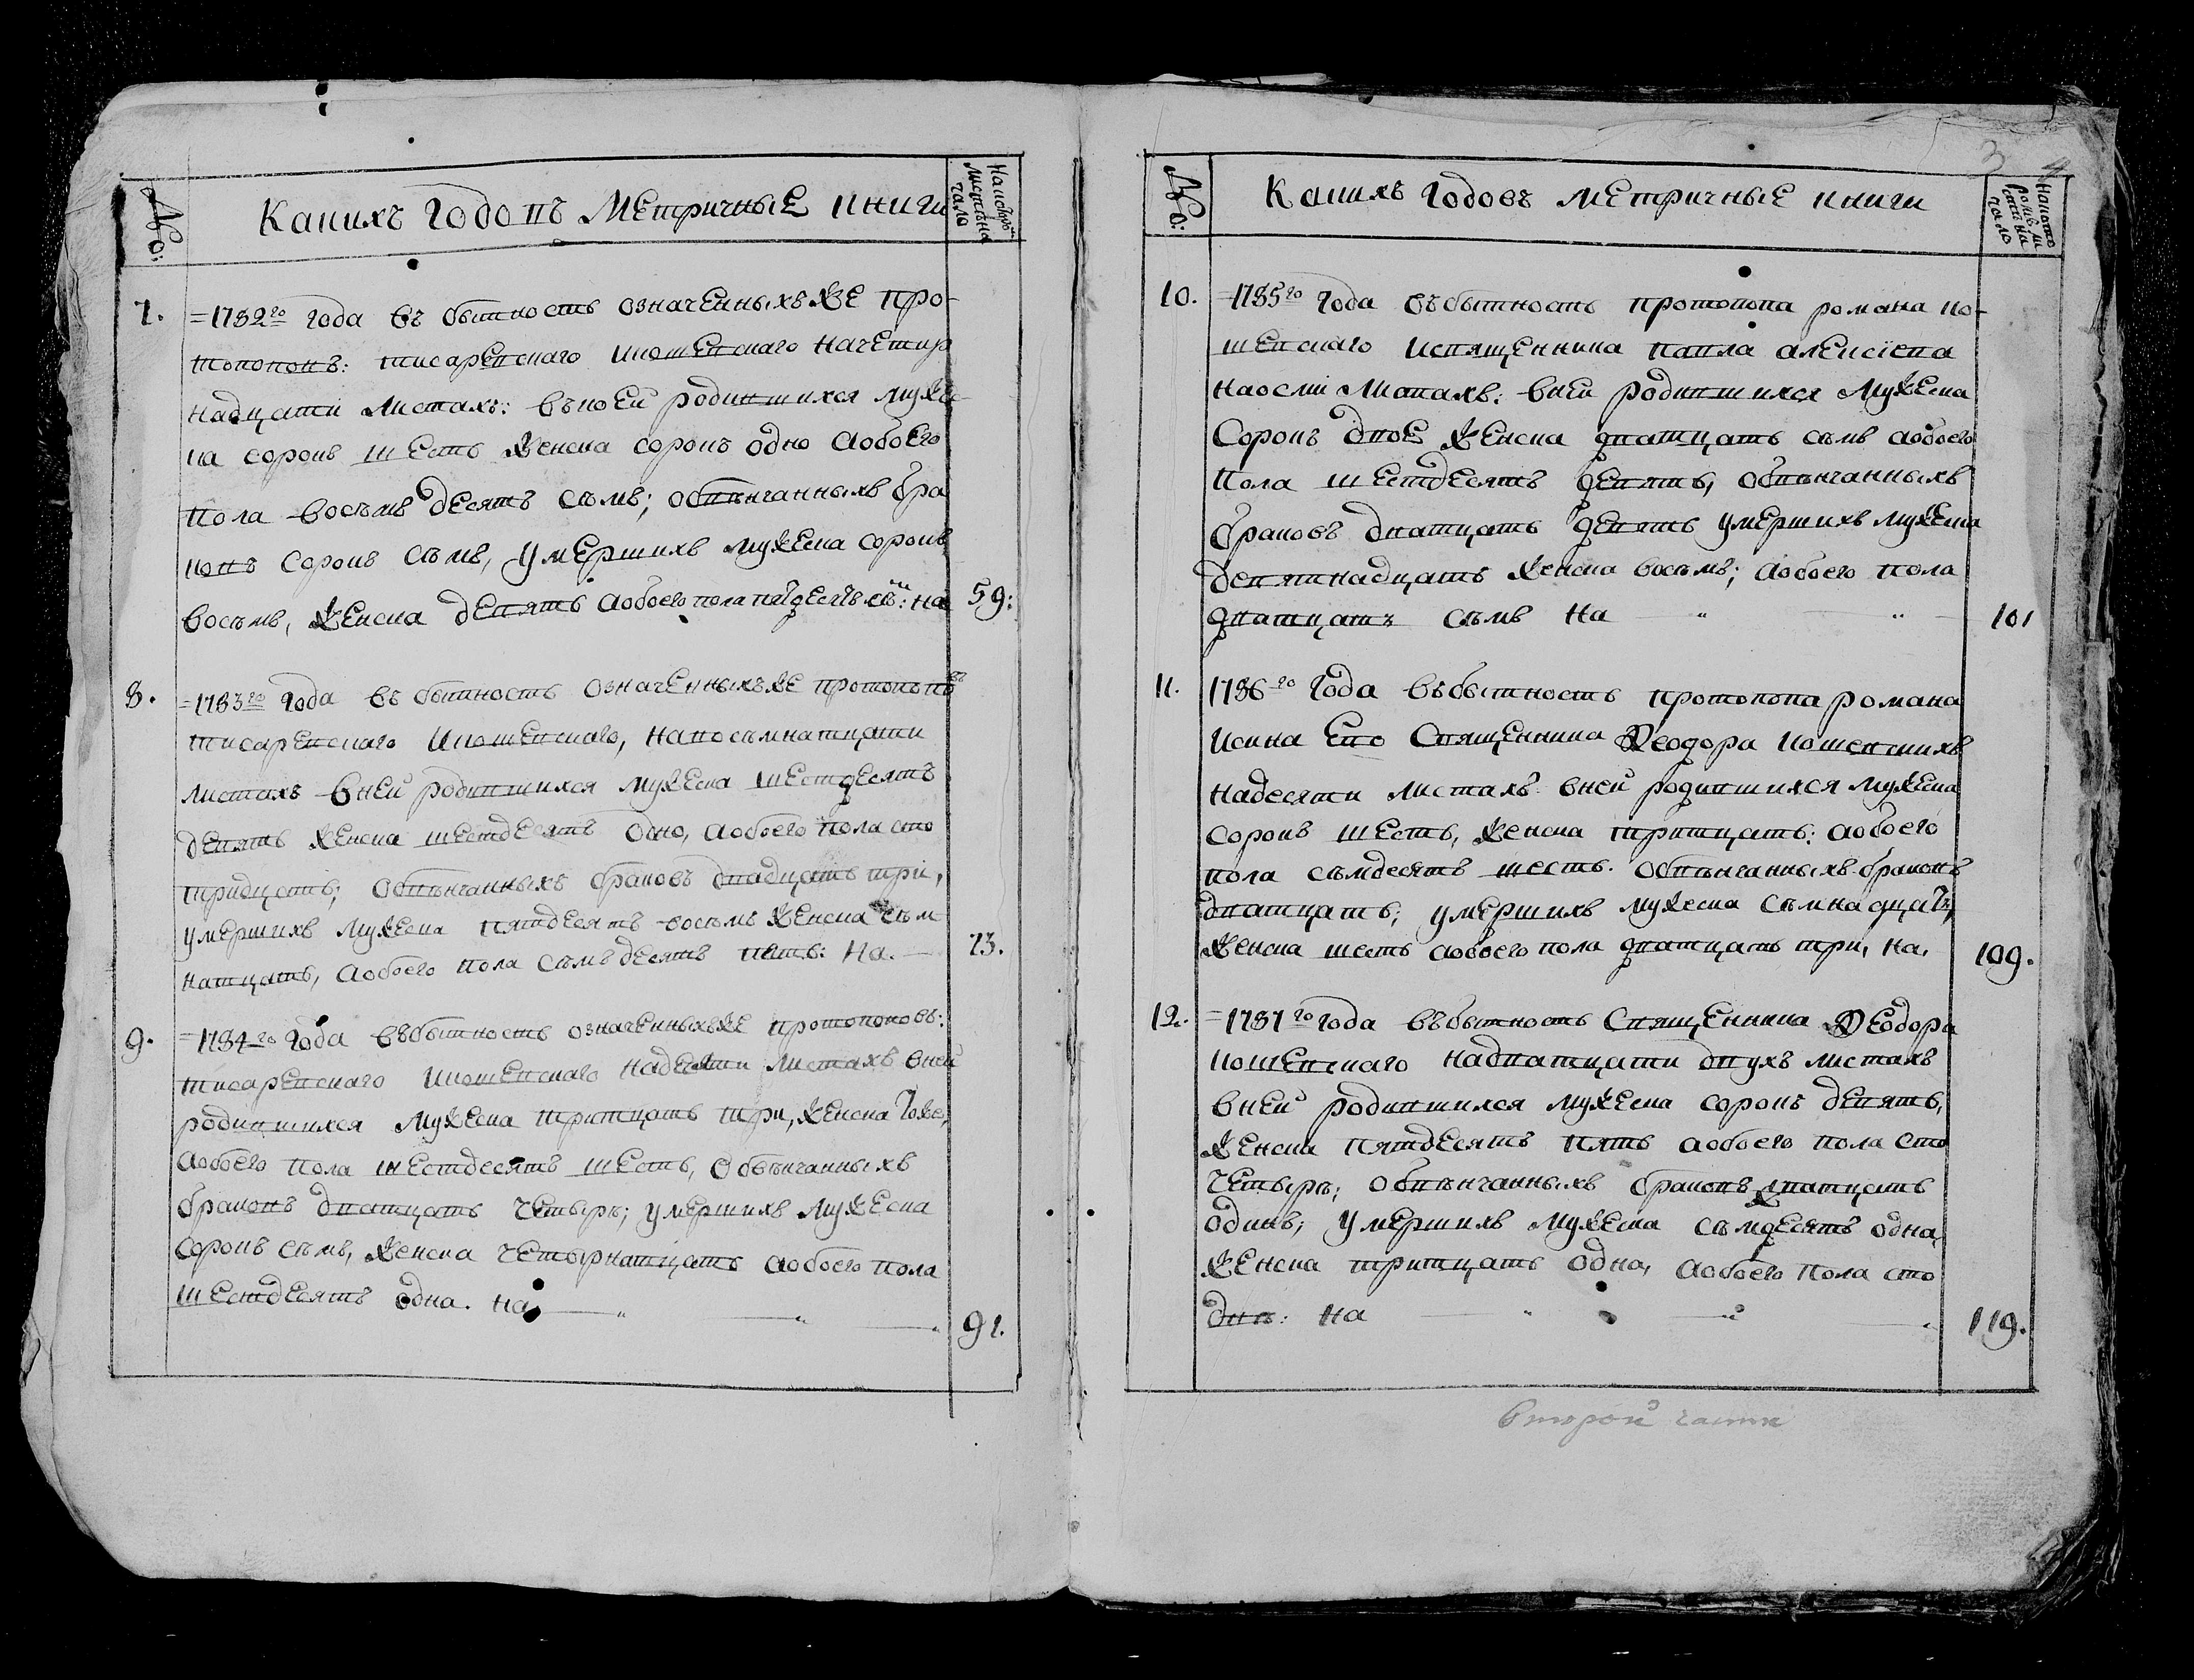 №:
Какихъ годовъ метричные книги
На которомъ листѣ начало
7.
=1782го года въ бытность означенныхъ же про-
топоповъ: писаревскаго ишошевскаго начетыр
надцати листахъ: въкоей родившихся мужес
ка сорокъ шесть женска сорокъ одно аобоего
пола восѣмъ десятъ сѣмъ; обвѣнчанныхъ бра
ковъ сорокъ сѣмъ, умершихъ мужеска сорокъ
восѣмъ, женска девять аобоего пола пятдесятъ сѣм: на
59:
8.
=1783го года въ бытность означенныхъже протопоповъ
писаревскаго икошевскаго, навосѣмнатцати
листахъ вней родившихся мужеска шестдесятъ
девять женска шестдесятъ одно, аобоего пола сто
тридцеть; обвѣнчанныхъ браковъ двадцать три,
умершихъ мужеска пятдесятъ восѣмъ женска сѣм
натцать, аобоего пола сѣмъдесятъ пять: на.
73.
9.
=1784го года въбытность означенныхъже протопоповъ:
писаревскаго икошевскаго надесяти листахъ вней
родившихся мужеска тритцать три, женска тоже,
аобоего пола шестдесятъ шесть, обвѣнчанныхъ
браковъ дватцать четырѣ; умершихъ мужеска
сорокъ сѣмъ, женска четырнатцать аобоего пола
шестдесятъ одна. на
91.
3
4
№:
Какихъ годовъ метричные книги
На котором листѣ начало
10.
=1785го года въбытность протопопа романа ко-
шевскаго исвященника павла алексіева
наосми листахъ: вней родившихся мужеска
сорокъ двое женска дватцать сѣмъ аобоего
пола шестдесятъ девять, обвѣнчанныхъ
браковъ дватцать девять умершихъ мужеска
девятнадцать женска восѣмъ; аобоего пола
дватцать сѣмъ на
101
11.
1786го года въбытность протопопа романа
исина его священника Ѳеодора кошевскихъ
надесяти листахъ вней родившихся мужеска
сорокъ шесть, женска тритцать: аобоего
пола сѣмдесятъ шесть. обвѣнчанныхъ браковъ
дватцать; умершихъ мужеска сѣмнадцать,
женска шесть аобоего пола дватцать три, на,
109.
12.
=1787го года въбытность священника Ѳеодора
кошевскаго надватцати двухъ листахъ
вней родившихся мужеска сорокъ девять,
женска пятдесятъ пять аобоего пола сто
четырѣ; обвѣнчанныхъ браковъ дватцать
одинъ; умершихъ мужеска сѣмдесятъ одна,
женска тритцать одна, аобоего пола сто
двѣ: на
119.
второй части